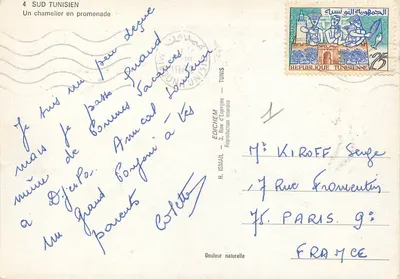 4 SUD TUNISIEN
Un chamelier en promenade
Je suis un peu déçue
mais je passe quand
même de bonnes vacances
à Djerba. Amical Souvenir
un Grand Bonjour à tes
parents
Colette
EDICHEM
R. ISMAIL - 3, Rue d'Espagne - TUNIS
Reproduction interdite
Couleur naturelle
الجمهورية التونسية
REPUBLIQUE TUNISIENNE
25
1
Mr KIROFF Serge
17 Rue
75. PARIS 9e
FRANCE